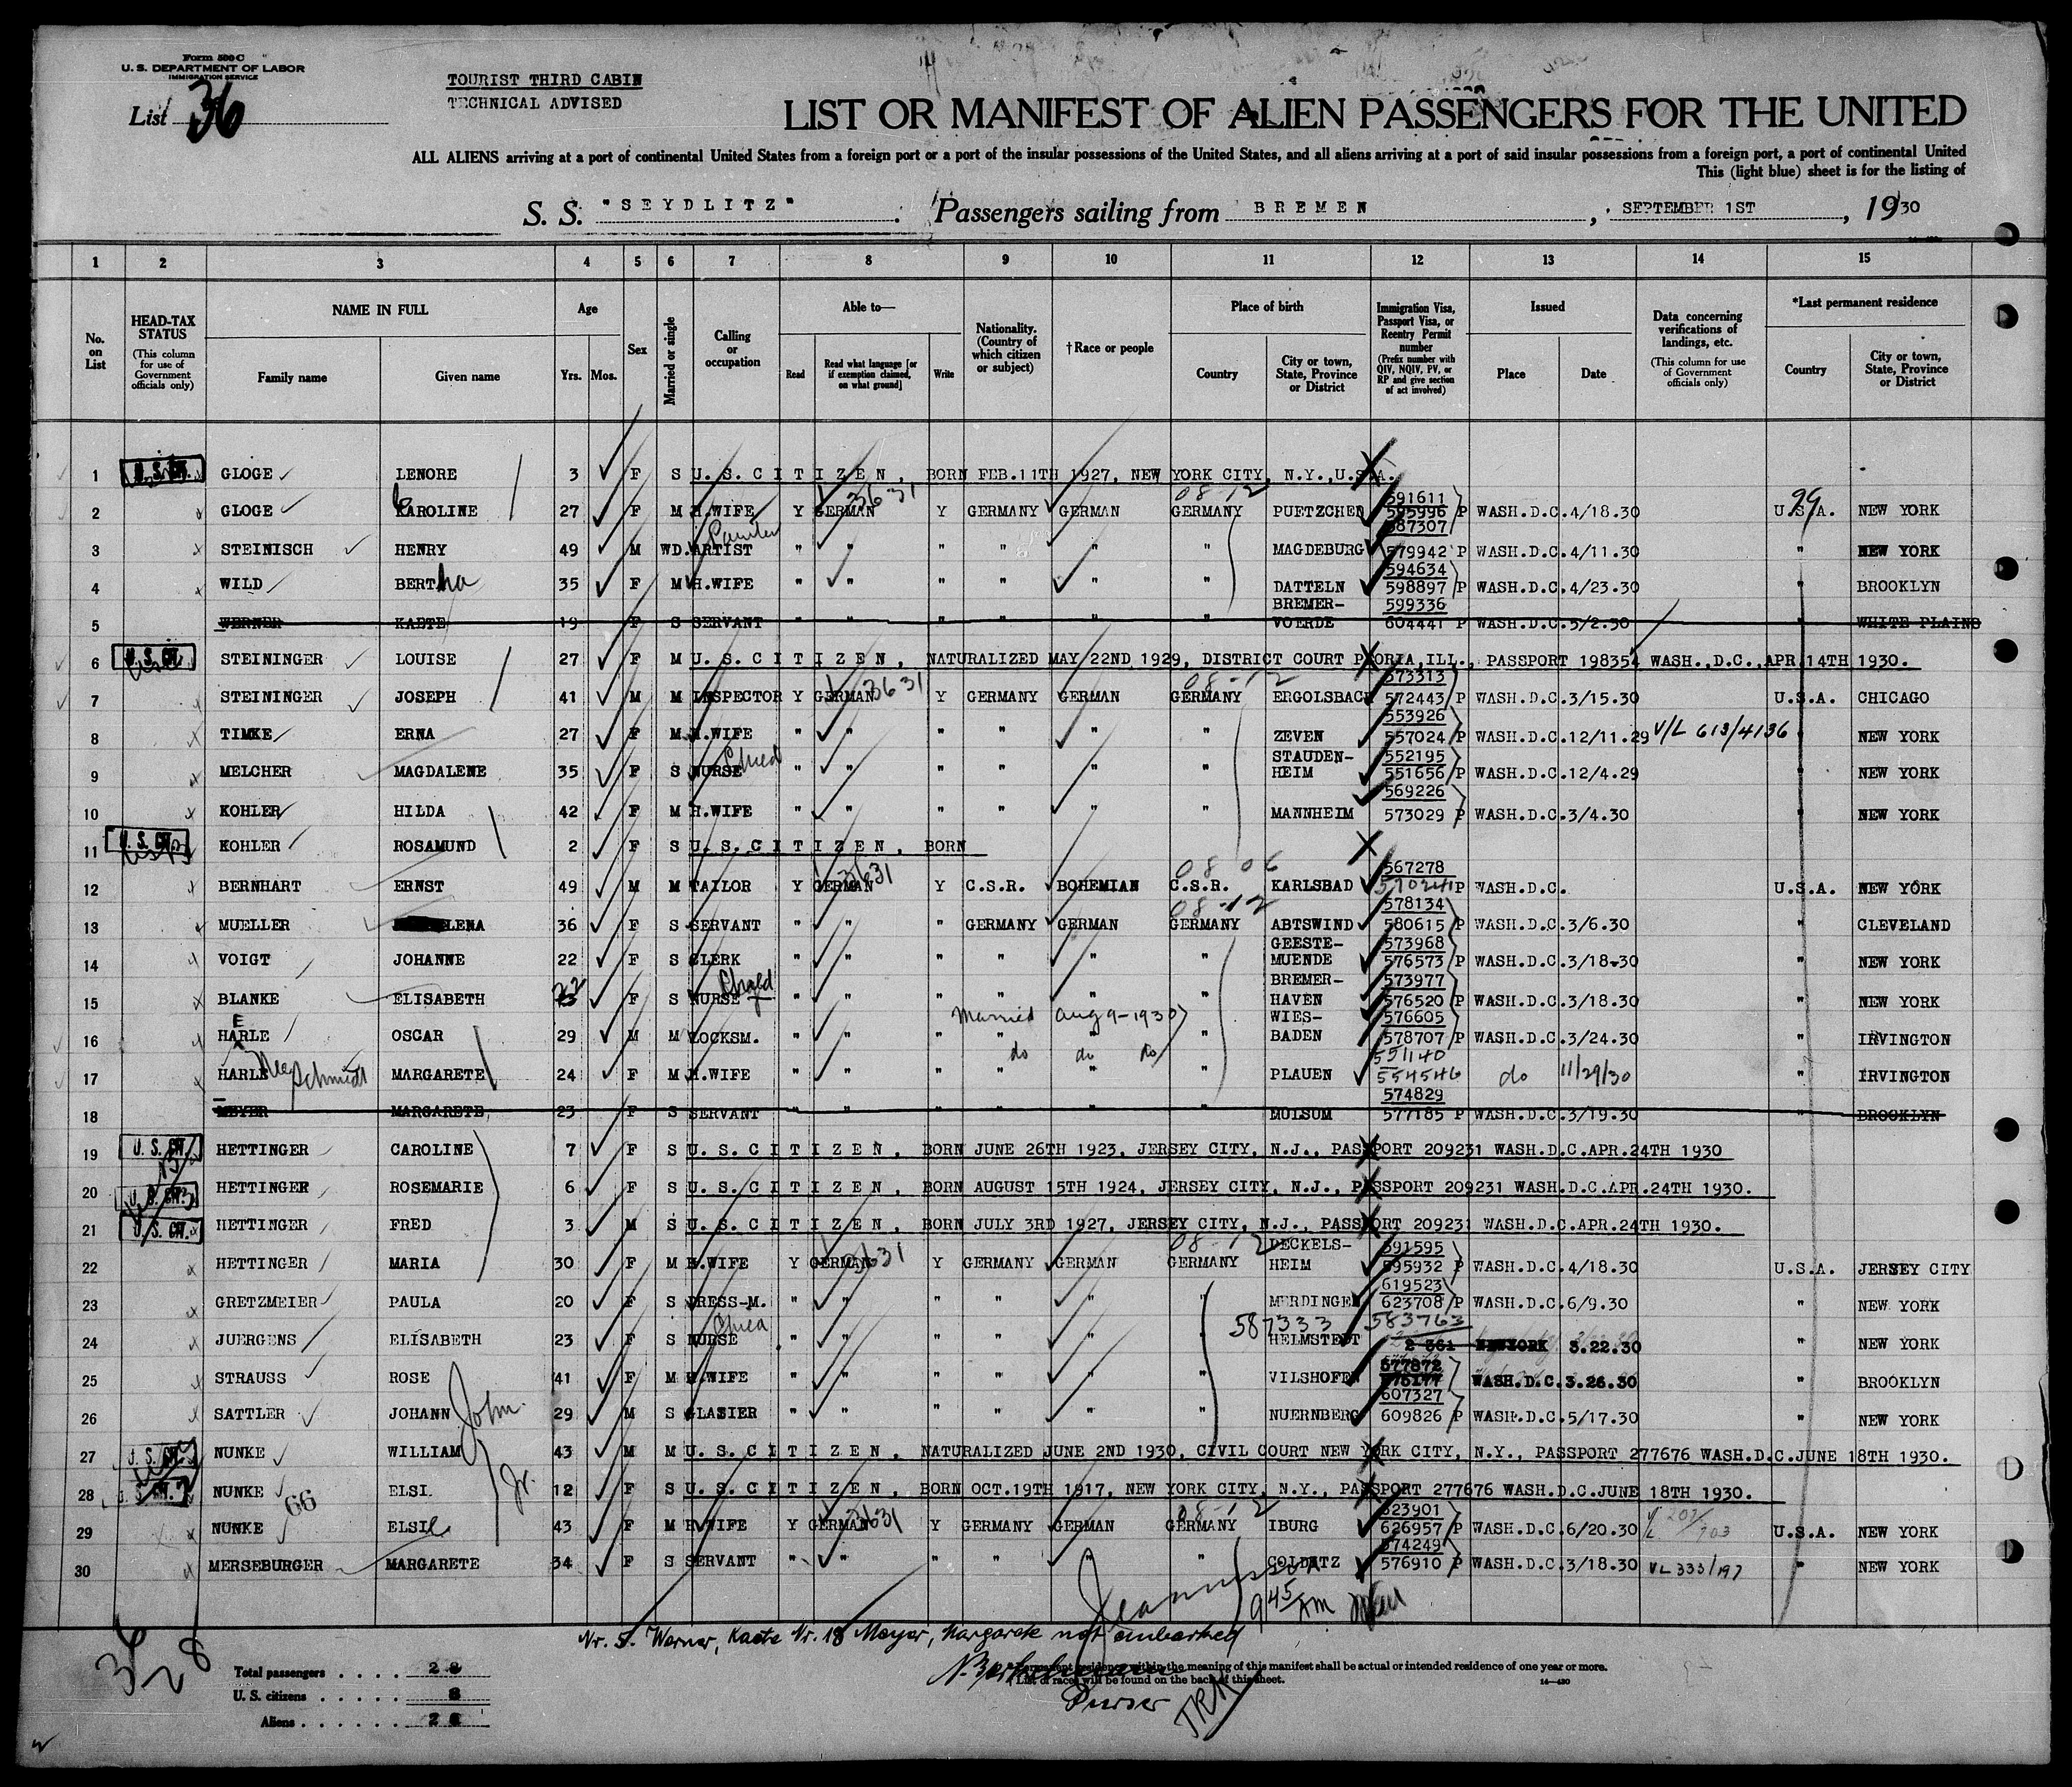 Form 500 C
U. S. DEPARTMENT OF LABOR
IMMIGRATION SERVICE
List 36
TOURIST THIRD CABIN
TECHNICAL ADVISED
LIST OR MANIFEST OF ALIEN PASSENGERS FOR THE UNITED
ALL ALIENS arriving at a port of continental United States from a foreign port or a port of the insular possessions of the United States, and all aliens arriving at a port of said insular possessions from a foreign port, a port of continental United
This (light blue) sheet is for the listing of
S. S. "SEYDLITZ" Passengers sailing from BREMEN, SEPTEMBER 1ST, 1930
1 2 3 4 5 6 7 8 9 10 11 12 13 14 15
No. on List
HEAD-TAX STATUS (This column for use of Government officials only)
NAME IN FULL
Family name Given name
Age
Yrs. Mos.
Sex
Married or single
Calling or occupation
Able to—
Read Read what language [or if exemption claimed, on what ground] Write
Nationality. (Country of which citizen or subject)
†Race or people
Place of birth
Country City or town, State, Province or District
Immigration Visa, Passport Visa, or Reentry Permit number (Prefix number with QIV, NQIV, PV, or RP and give section of act involved)
Issued
Place Date
Data concerning verifications of landings, etc. (This column for use of Government officials only)
*Last permanent residence
Country City or town, State, Province or District
1 U.S. CIT. GLOGE LENORE 3 F S U.S.CITIZEN, BORN FEB.11TH 1927, NEW YORK CITY, N.Y.,U.S.A.
3631 08-12 591611 99
2 GLOGE KAROLINE 27 F M H.WIFE Y GERMAN Y GERMANY GERMAN GERMANY PUETZCHEN 595996 P WASH.D.C.4/18.30 U.S.A. NEW YORK
Painter 587307
3 STEINISCH HENRY 49 M WD. ARTIST " " " " " " MAGDEBURG 579942 P WASH.D.C.4/11.30 " NEW YORK
594634
4 WILD BERTha 35 F M H.WIFE " " " " " " DATTELN 598897 P WASH.D.C.4/23.30 BROOKLYN
BREMER- 599336
5 WERNER KAETE 19 F S SERVANT " " " " " " VOERDE 604441 P WASH.D.C.5/2.30 " WHITE PLAINS
6 U.S. CIT. STEININGER LOUISE 27 F M U.S.CITIZEN, NATURALIZED MAY 22ND 1929, DISTRICT COURT PEORIA,ILL., PASSPORT 198354 WASH.,D.C.,APR.14TH 1930.
3631 08-12 573313
7 STEININGER JOSEPH 41 M M INSPECTOR Y GERMAN Y GERMANY GERMAN GERMANY ERGOLSBACH 572443 P WASH.D.C.3/15.30 U.S.A. CHICAGO
553926
8 TIMKE ERNA 27 F M H.WIFE " " " " " " ZEVEN 557024 P WASH.D.C.12/11.29 V/L 613/4136 " NEW YORK
STAUDEN- 552195
9 MELCHER MAGDALENE 35 F S NURSE " " " " " " HEIM 551656 P WASH.D.C.12/4.29 " NEW YORK
569226
10 KOHLER HILDA 42 F M H.WIFE " " " " " " MANNHEIM 573029 P WASH.D.C.3/4.30 NEW YORK
11 U.S. CIT. KOHLER ROSAMUND 2 F S U.S.CITIZEN, BORN
3631 08 06 567278
12 BERNHART ERNST 49 M M TAILOR Y GERMAN Y C.S.R. BOHEMIAN C.S.R. KARLSBAD P WASH.D.C. U.S.A. NEW YORK
08-12 578134
13 MUELLER LENA 36 F S SERVANT " " " GERMANY GERMAN GERMANY ABTSWIND 580615 P WASH.D.C.3/6.30 " CLEVELAND
GEESTE- 573968
14 VOIGT JOHANNE 22 F S CLERK " " " " " " MUENDE 576573 P WASH.D.C.3/18.30 " NEW YORK
BREMER- 573977
15 BLANKE ELISABETH 22 F S NURSE " " " " " " HAVEN 576520 P WASH.D.C.3/18.30 " NEW YORK
Married Aug 9-1930 WIES- 576605
16 HARLE E OSCAR 29 M M LOCKSM. " " " " " " BADEN 578707 P WASH.D.C.3/24.30 " IRVINGTON
do do do 551140
17 HARLE Nee Schmidt MARGARETE 24 F M H.WIFE " " " " " " PLAUEN 554546 do 11/29/30 " IRVINGTON
574829
18 MEYER MARGARETE 23 F S SERVANT " " " " " " MULSUM 577185 P WASH.D.C.3/19.30 " BROOKLYN
19 U.S. CIT. HETTINGER CAROLINE 7 F S U.S.CITIZEN, BORN JUNE 26TH 1923, JERSEY CITY, N.J., PASSPORT 209231 WASH.D.C.APR.24TH 1930
20 U.S. CIT. HETTINGER ROSEMARIE 6 F S U.S.CITIZEN, BORN AUGUST 15TH 1924, JERSEY CITY, N.J., PASSPORT 209231 WASH.D.C.APR.24TH 1930.
21 U.S. CIT. HETTINGER FRED 3 M S U.S.CITIZEN, BORN JULY 3RD 1927, JERSEY CITY, N.J., PASSPORT 209231 WASH.D.C.APR.24TH 1930.
3631 08-12 DECKELS- 591595
22 HETTINGER MARIA 30 F M H.WIFE Y GERMAN Y GERMANY GERMAN GERMANY HEIM 595932 P WASH.D.C.4/18.30 U.S.A. JERSEY CITY
619523
23 GRETZMEIER PAULA 20 F S DRESS-M. " " " " " " MERDINGEN 623708 P WASH.D.C.6/9.30 " NEW YORK
587333 583763
24 JUERGENS ELISABETH 23 F S NURSE " " " " " HELMSTEDT 2 361 NEWYORK 3.22.30 " NEW YORK
577872
25 STRAUSS ROSE 41 F M H.WIFE " " " " " " VILSHOFEN WASH.D.C.3.26.30 " BROOKLYN
607327
26 SATTLER JOHANN John 29 M S GLASIER " " " " " " NUERNBERG 609826 P WASH.D.C.5/17.30 " NEW YORK
27 U.S. CIT. NUNKE WILLIAM 43 M M U.S.CITIZEN, NATURALIZED JUNE 2ND 1930, CIVIL COURT NEW YORK CITY, N.Y., PASSPORT 277676 WASH.D.C.JUNE 18TH 1930.
28 U.S. CIT. NUNKE ELSI Jr. 12 F S U.S.CITIZEN, BORN OCT.19TH 1917, NEW YORK CITY, N.Y., PASSPORT 277676 WASH.D.C.JUNE 18TH 1930.
66 3631 08-12 623901
29 NUNKE ELSIE 43 F M H.WIFE Y GERMAN Y GERMANY GERMAN GERMANY IBURG 626957 P WASH.D.C.6/20.30 U.S.A. NEW YORK
574249
30 MERSEBURGER MARGARETE 34 F S SERVANT " " " " " " COLDITZ 576910 P WASH.D.C.3/18.30 VL 333/197 " NEW YORK
9 45 AM
Nr. 5. Werner, Kaete Nr. 18 Meyer, Margarete not embarked
36
28
Total passengers 28
U. S. citizens 8
Aliens
Permanent residence within the meaning of this manifest shall be actual or intended residence of one year or more.
List of races will be found on the back of this sheet.
14—430
Purser